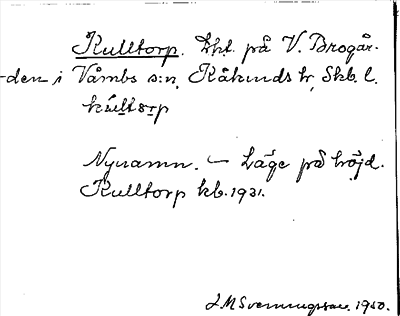 Kulltorp. Lht. på V. Brogår-
den i Våmbs s:n, Kåkinds hr, Skb. l.
kúltɔrp
Nynamn. – Läge på höjd.
Kulltorp kb. 1931.
J M Svenningsson. 1950.